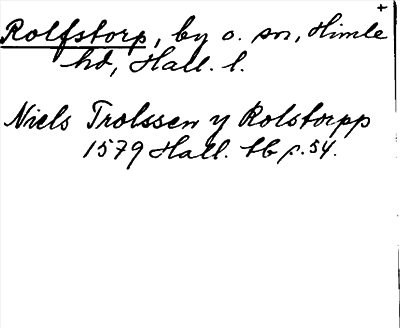 +
Rolfstorp, by o. sn, Himle
hd, Hall. l.
Niels Trolssen y Rolstorpp
1579 Hall. tb s. 54.